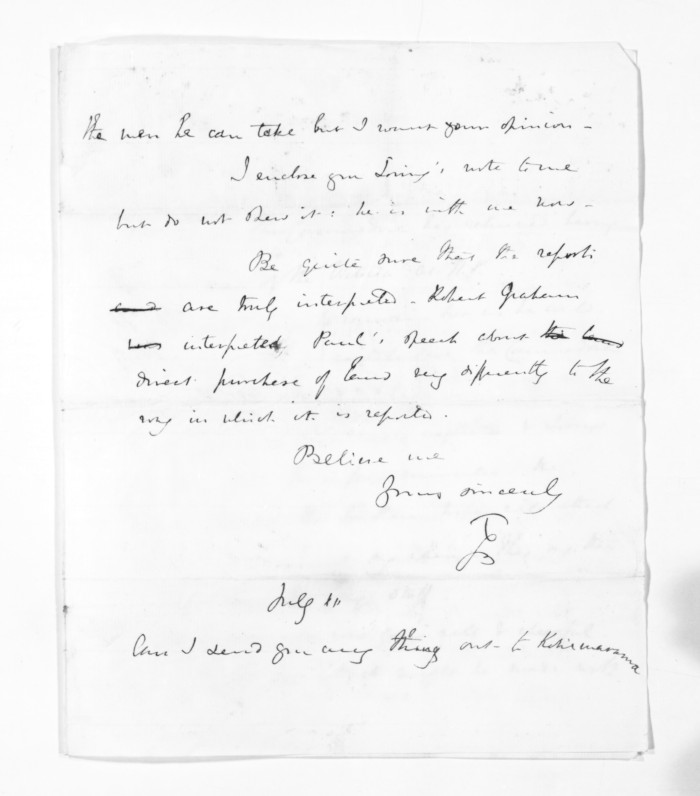 the men he can take but I want your opinion -
I enclose you Loring's note to me
but do not shew it: he is with me now -
Be quite sure that the reports
and are truly interpreted - Robert Graham
was interpreted Paul's speech about the land
direct purchase of land very differently to the
way in which it is reported.
Believe me
Yours sincerely
July 11
Can I send you any thing out to Kohimarama